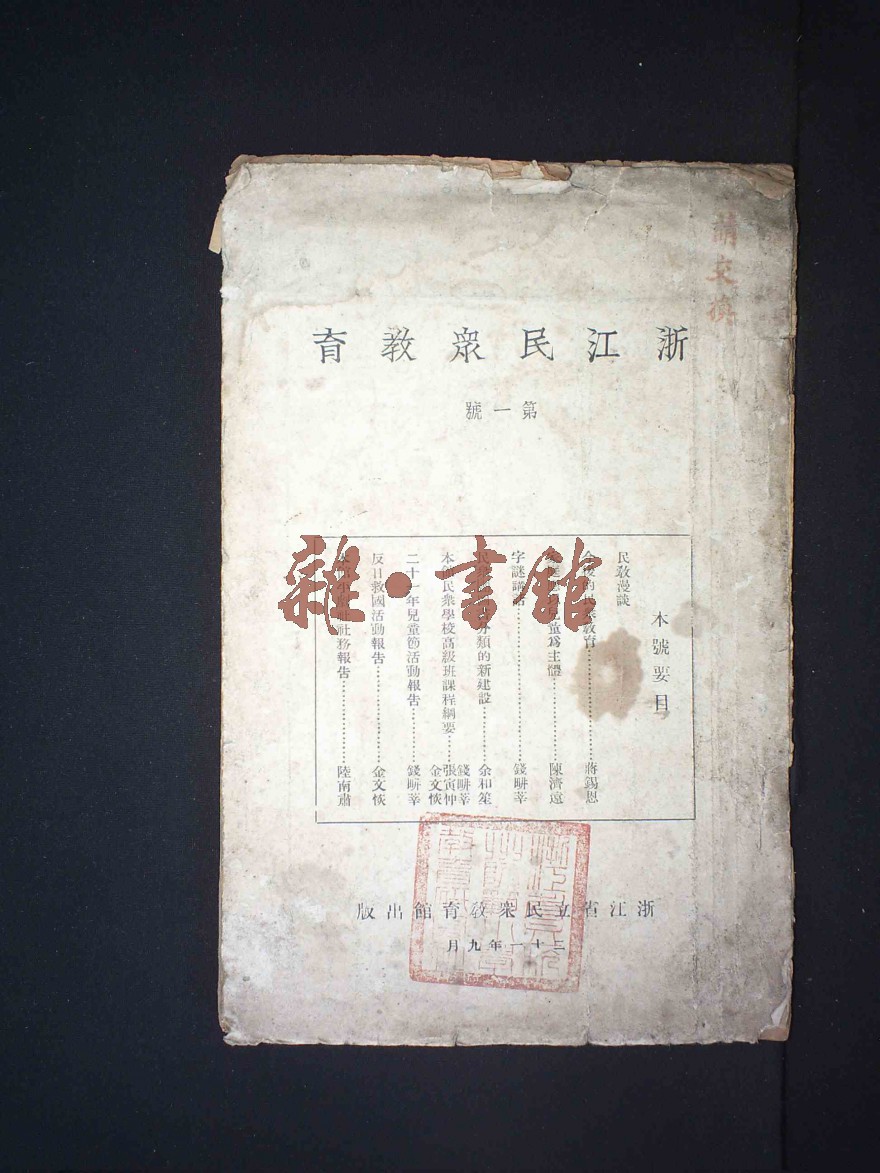 浙江民眾教育
第一號
本號要目
民教漫談
教育……蔣錫恩
兒童爲主體……陳濟遠
字謎講話……錢畊莘
分類的新建設……余和笙
本 民眾學校高級班課程綱要……錢畊莘 張寅仲 金文恢
二十一年兒童節活動報告……錢畊莘
反日救國活動報告……金文恢
社務報告……陸南肅
浙江省立民眾教育館出版
二十一年九月
雜·書館